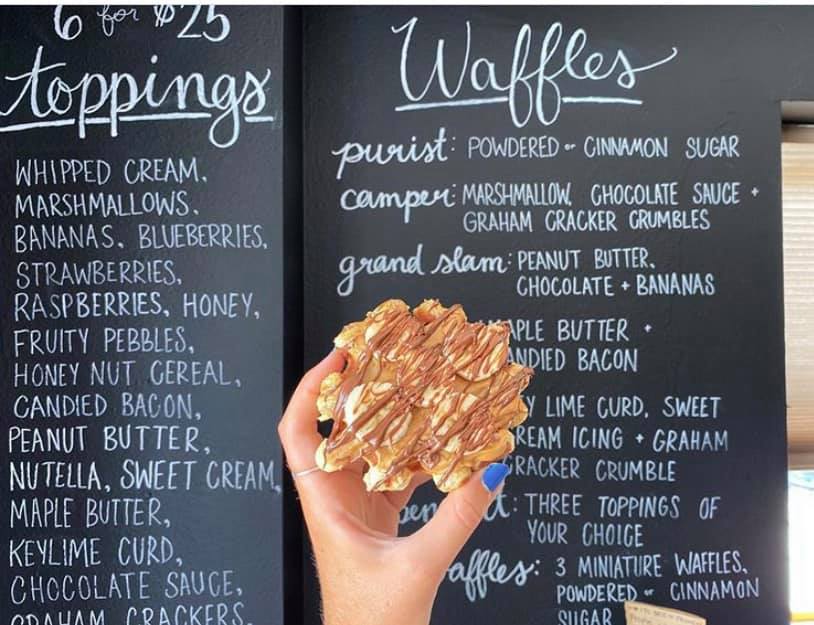 6 for $25
toppings
WHIPPED CREAM,
MARSHMALLOWS,
BANANAS, BLUEBERRIES,
STRAWBERRIES,
RASPBERRIES, HONEY,
FRUITY PEBBLES,
HONEY NUT CEREAL,
CANDIED BACON,
PEANUT BUTTER,
NUTELLA, SWEET CREAM,
MAPLE BUTTER,
KEYLIME CURD,
CHOCOLATE SAUCE,
GRAHAM CRACKERS,
Waffles
purist: POWDERED or CINNAMON SUGAR
camper: MARSHMALLOW, CHOCOLATE SAUCE +
GRAHAM CRACKER CRUMBLES
grand slam: PEANUT BUTTER,
CHOCOLATE + BANANAS
APLE BUTTER +
ANDIED BACON
Y LIME CURD, SWEET
REAM ICING + GRAHAM
RACKER CRUMBLE
THREE TOPPINGS OF
YOUR CHOICE
affles: 3 MINIATURE WAFFLES,
POWDERED or CINNAMON
SUGAR